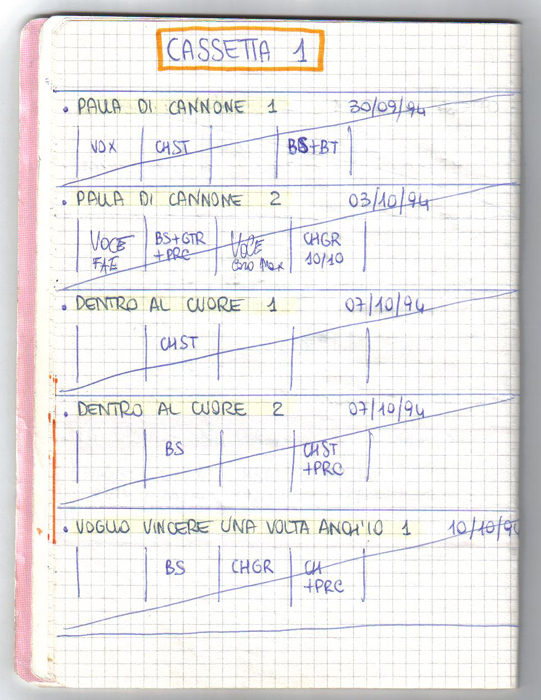 CASSETTA 1
• PALLA DI CANNONE 1 30/09/94
VOX CHST BS+BT
• PALLA DI CANNONE 2 03/10/94
VOCE BS+GTR VOCE CHGR
FAE +PRC Coro Max 10/10
• DENTRO AL CUORE 1 07/10/94
CHST
• DENTRO AL CUORE 2 07/10/94
BS CHST
+PRC
• VOGLIO VINCERE UNA VOLTA ANCH'IO 1 10/10/94
BS CHGR CH
+PRC